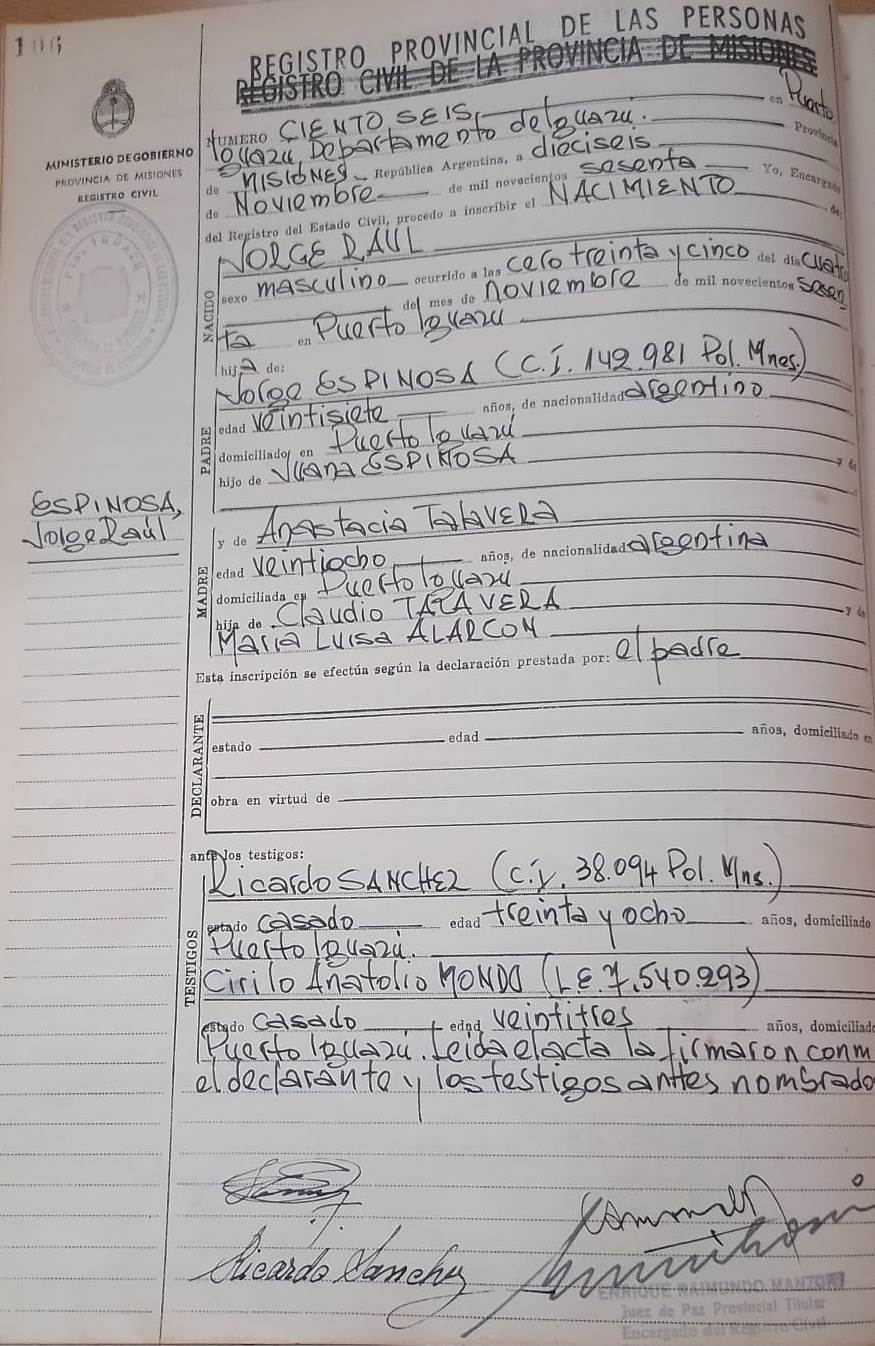 106
REGISTRO PROVINCIAL DE LAS PERSONAS
REGISTRO CIVIL DE LA PROVINCIA DE MISIONES
MINISTERIO DE GOBIERNO
PROVINCIA DE MISIONES
REGISTRO CIVIL
NUMERO CIENTO SEIS, en Puerto
Iguazú, Departamento de Iguazú. Provincia
de MISIONES República Argentina, a dieciseis
de Noviembre de mil novecientos sesenta Yo, Encargado
del Registro del Estado Civil, procedo a inscribir el NACIMIENTO de:
JORGE RAUL
NACIDO
sexo masculino ocurrido a las cero treinta y cinco del día Cuatro
del mes de noviembre de mil novecientos Sesen
ta en Puerto Iguazú
hija de:
PADRE
Jorge ESPINOSA (C.I. 142.981 Pol. Mnes.)
edad veintisiete años, de nacionalidad argentino
domiciliado en Puerto Iguazú
hijo de Juana ESPINOSA y de
ESPINOSA,
Jorge Raúl
MADRE
y de Anastacia TALAVERA
edad veintiocho años, de nacionalidad argentina
domiciliada en Puerto Iguazú
hija de Claudio TALAVERA y de
Maria Luisa ALARCON
Esta inscripción se efectúa según la declaración prestada por: el padre
DECLARANTE
estado edad años, domiciliado en
obra en virtud de
ante los testigos:
TESTIGOS
Ricardo SANCHEZ (C.I. 38.094 Pol. Mns.)
estado casado edad treinta y ocho años, domiciliado
Puerto Iguazú.
Cirilo Anatolio MONDO (L.E. 7.540.293)
estado casado edad veintitres años, domiciliado
Puerto Iguazú. Leida el acta la firmaron conm
el declarante y los testigos antes nombrado
Ricardo Sanchez
ENRIQUE RAIMUNDO MANZONI
Juez de Paz Provincial Titular
Encargado del Registro Civil